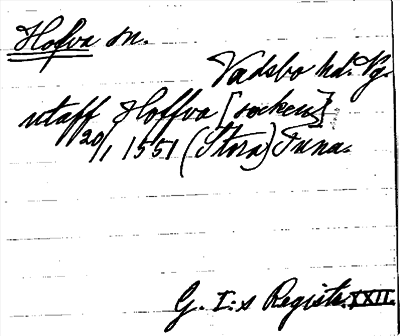 Hofva sn.
Vadsbo hd. Vg.
utaff Hoffva [socken]
20/1 1551 (Stora) Tuna.
G. I:s Registr. XXII.